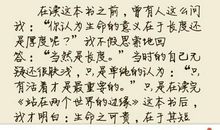 在读这本书之前，曾有人这么问
我："你认为生命的意义在于长度还
是厚度呢？"我不假思索地回
答："当然是长度。"当时的自己无
疑还很肤浅，只是单纯的认为："只
有活着才是最重要的。"只是在读完
《站在两个世界的边缘》这本书后，
我才明白：生命之可贵，在于其短